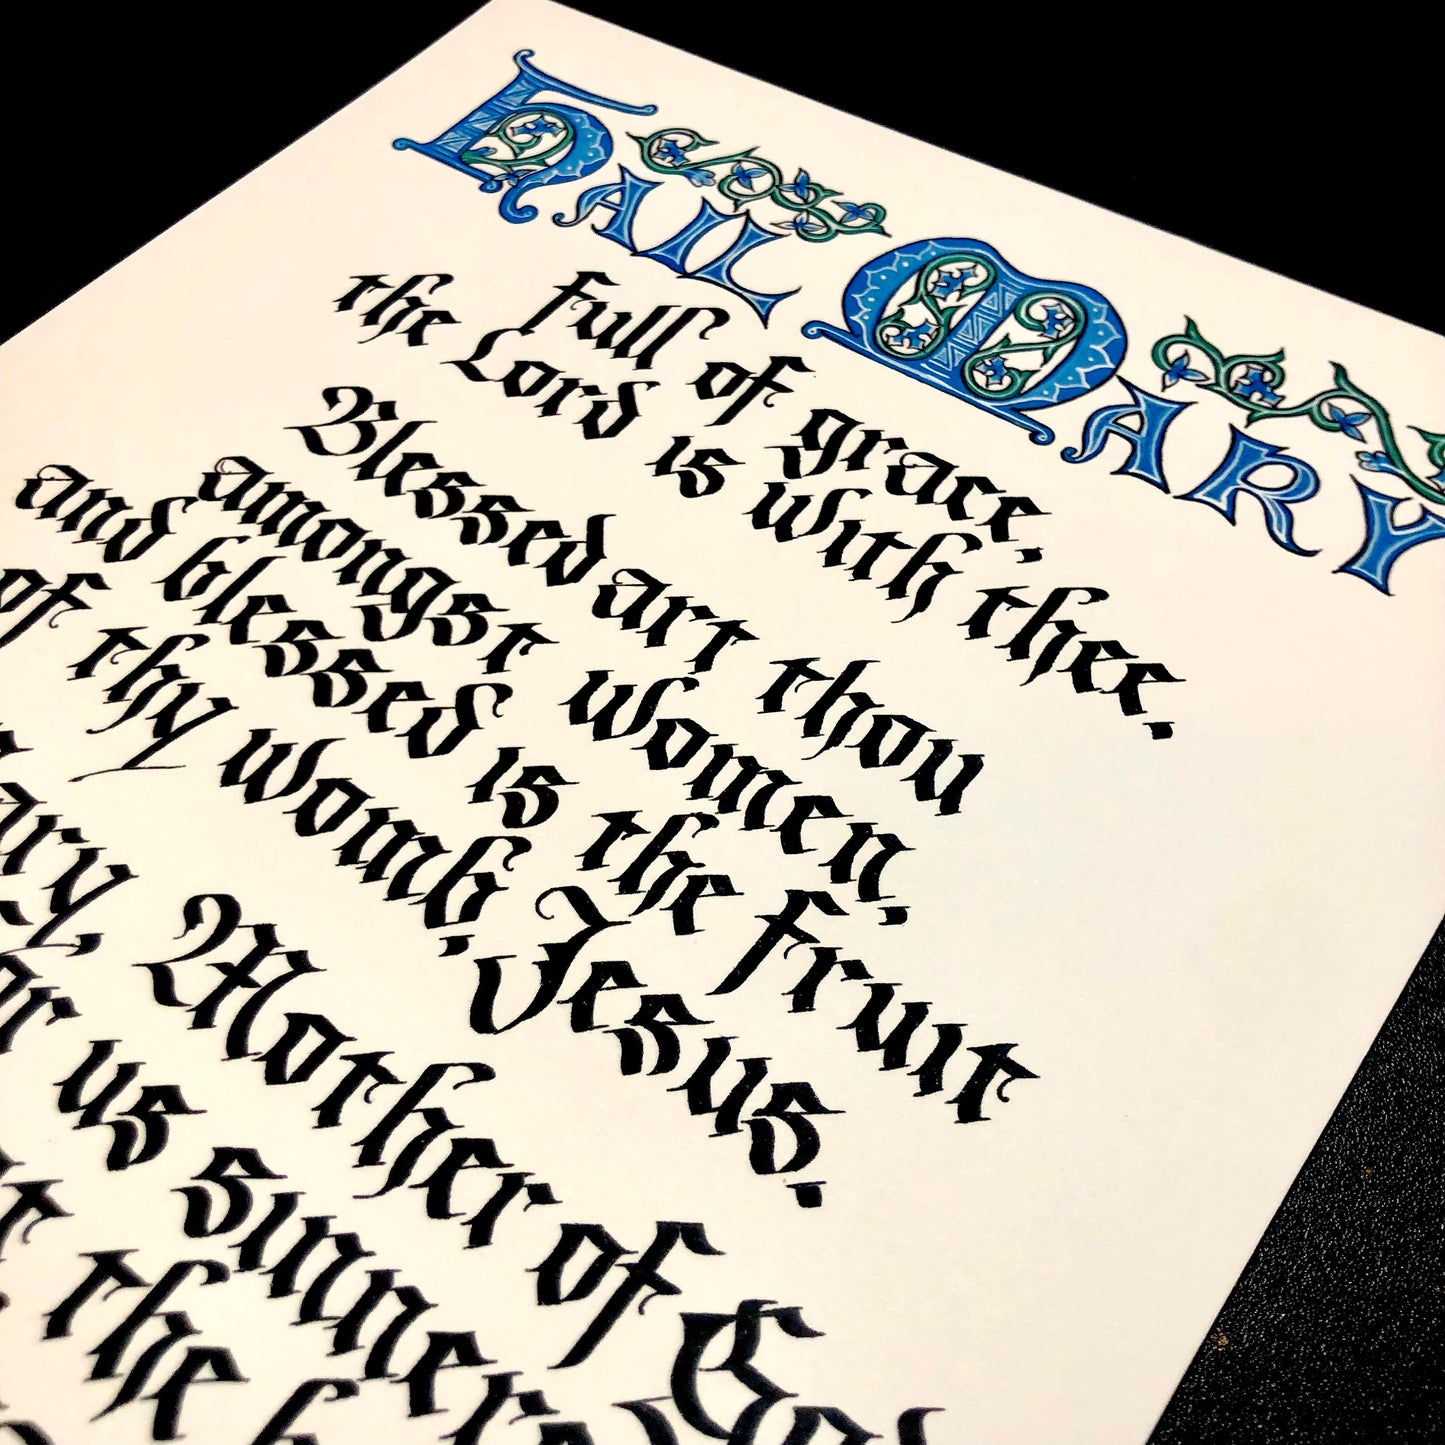 HAIL MARY
full of grace,
the Lord is with thee.
Blessed art thou
amongst women,
and blessed is the fruit
of thy womb, Jesus.
Mother of
us sinners
the